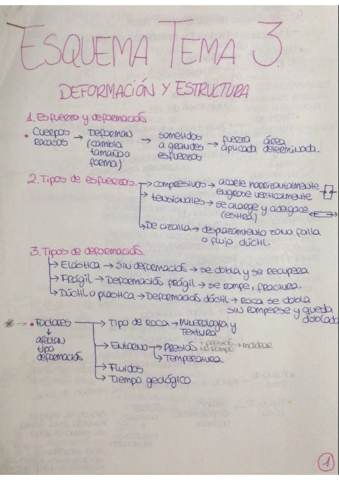 ESQUEMA TEMA 3.
DEFORMACIÓN Y ESTRUCTURA
1. Esfuerzo y deformación
• Cuerpos rocosos → Deforman (cambia tamaño o forma) → sometidos a grandes esfuerzos → fuerza aplicada área determinada.
2. Tipos de esfuerzos. → compresivos → acorte horizontalmente engrose verticalmente
→ tensionales → se alarge y adelgace (estira)
→ De cizalla → desplazamiento zona falla o flujo dúctil.
3. Tipos de deformación.
→ Elástica → Sin deformación → se dobla y se recupera.
→ Frágil → Deformación frágil → se rompe, fractura.
→ Dúctil o plástica → Deformación dúctil → Roca se dobla sin romperse y queda doblada
* → • Factores → Tipo de roca → Mineralogía y textura
↓ afectan tipo deformación
→ Entorno → Presión + presión no rompe → moldear
→ Temperatura.
→ Fluidos
→ Tiempo geológico.
1